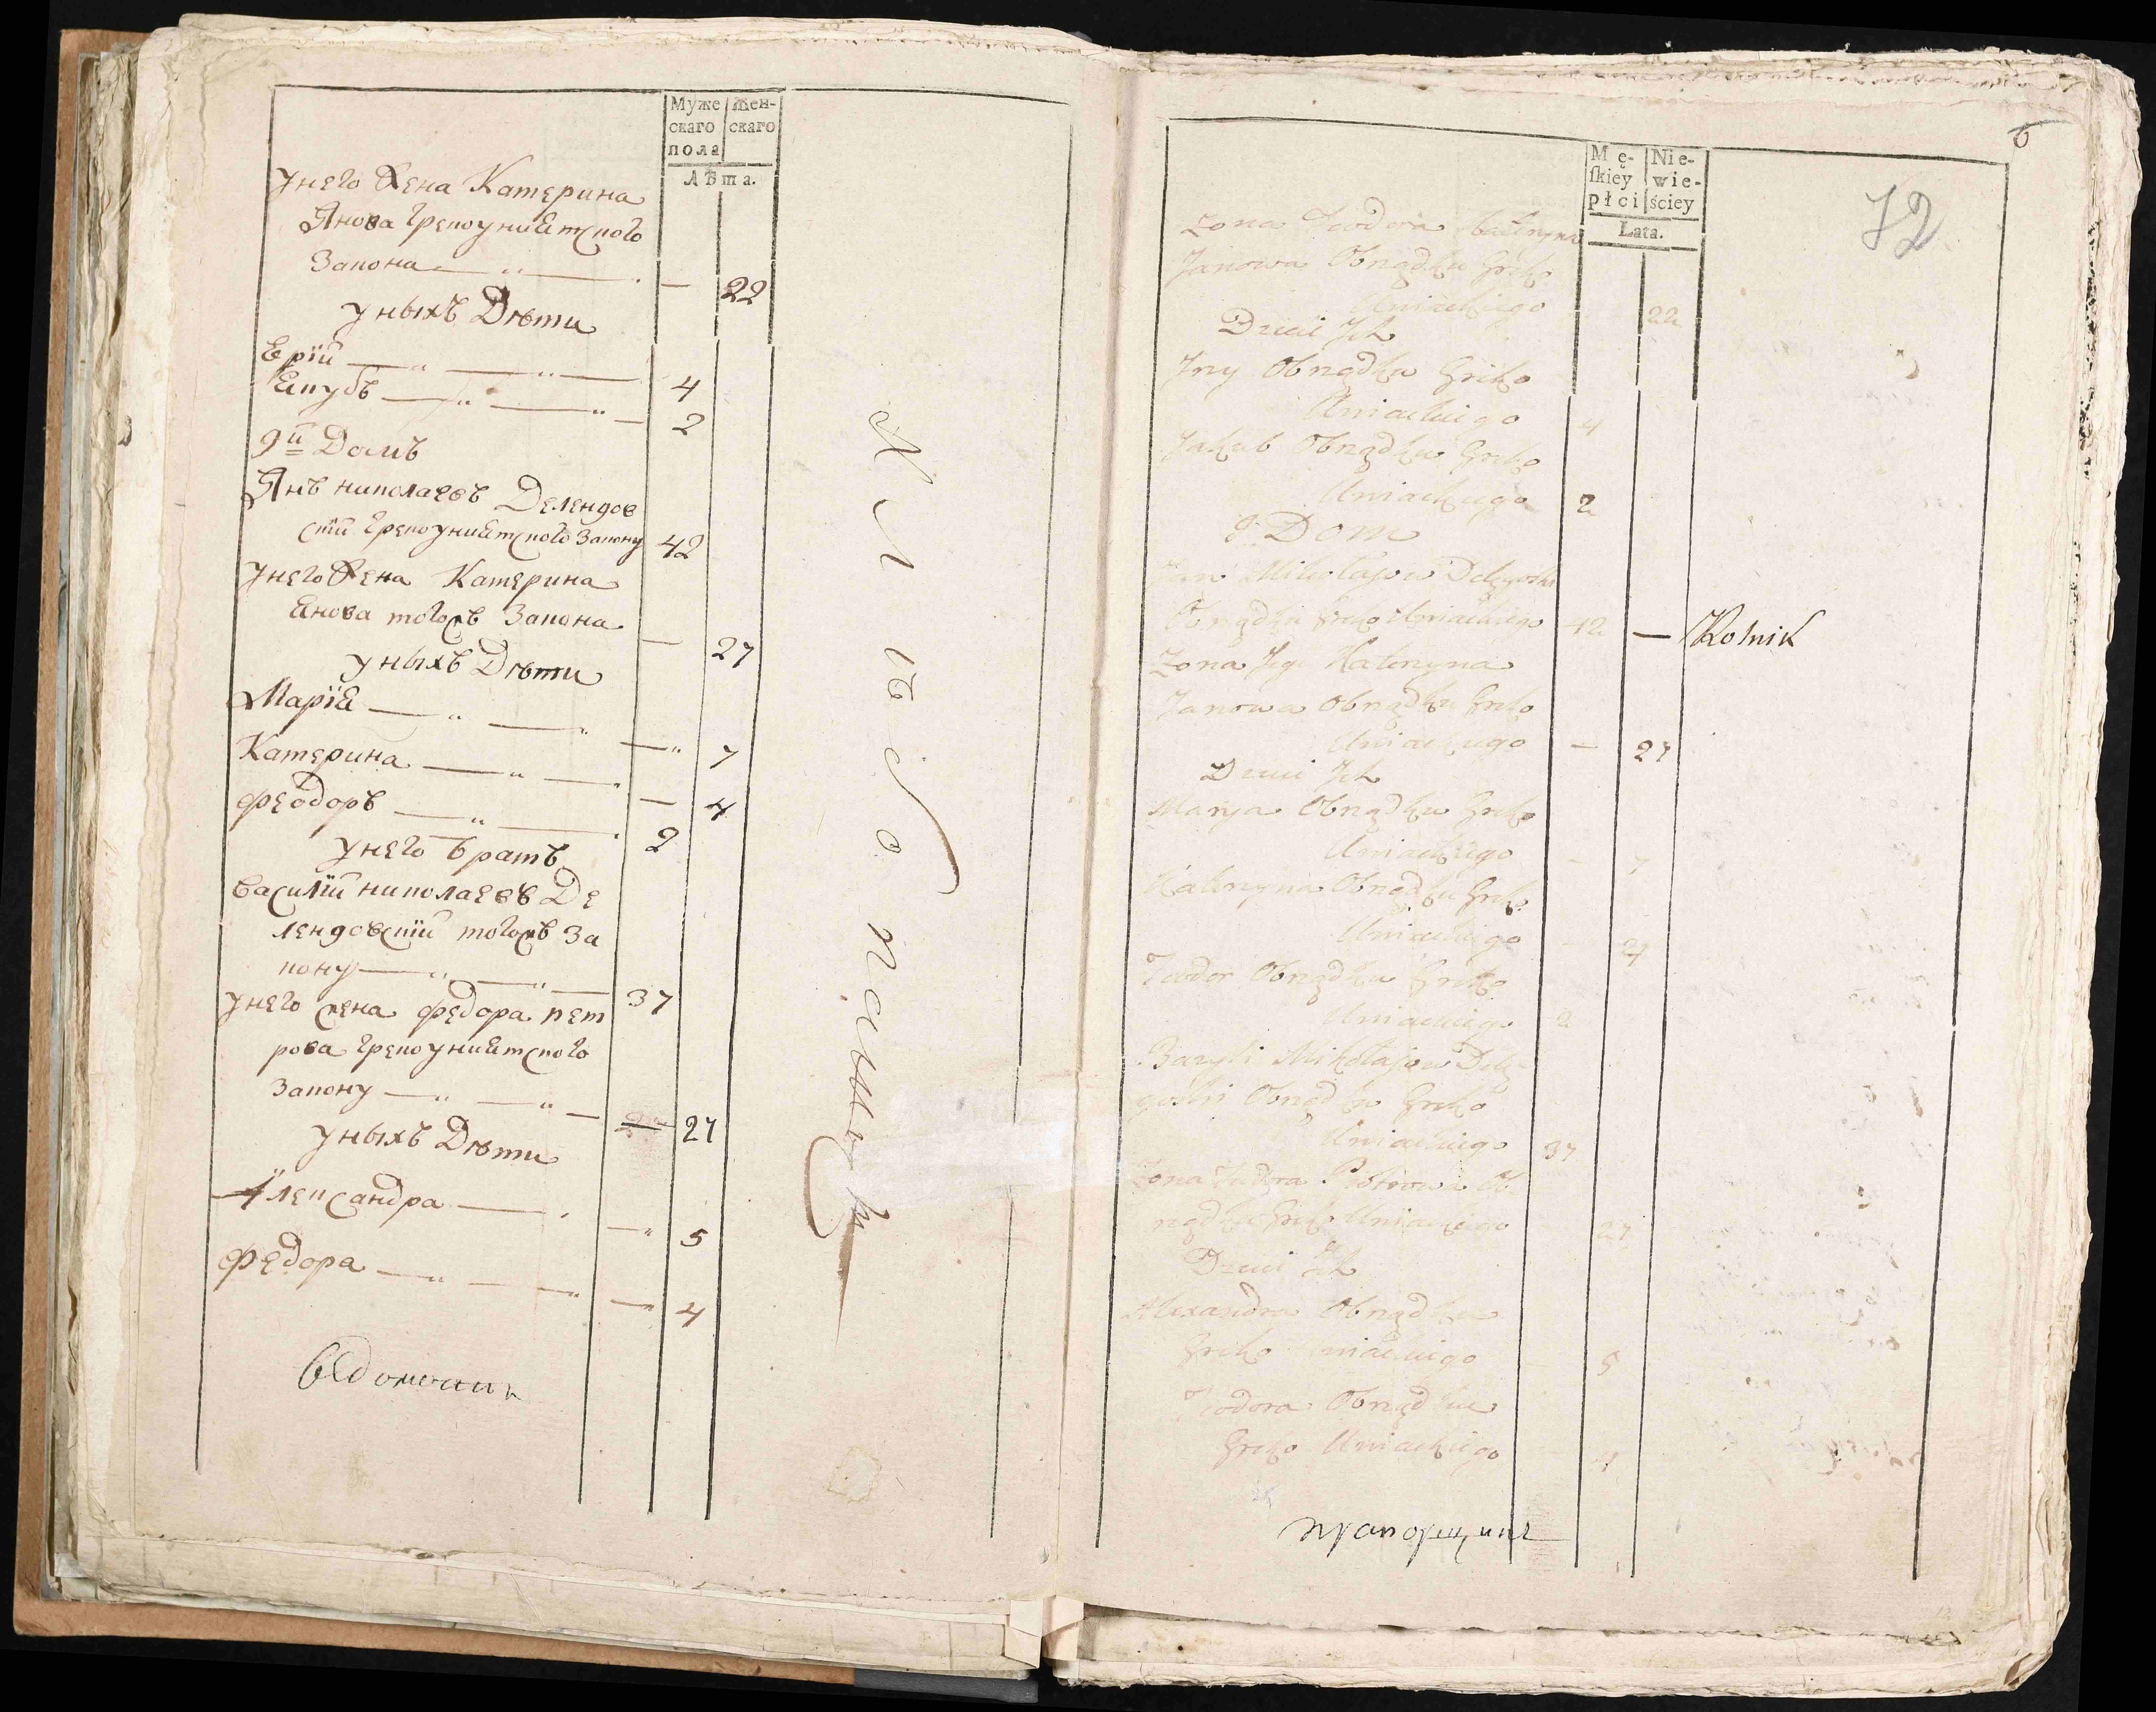 Муже Жен-
скаго скаго
пола
Лѣта.
унего Жена Катерина
Янова Грекоуниятского
Закона — 22
уныхъ Дѣти
Ерїй 4
Якубъ 2
9й Домъ
Янъ николаевъ Делендов
скїй Грекоуниятского Закону 42
унего Жена Катерина
Янова тогожъ Закона — 27
уныхъ Дѣти
Марїя — 7
Катерина — 4
Феодоръ 2
унего Братъ
Василїй николаевъ Де
лендовскїй тогожъ За
кону 37
унего жена Федора пет
рова Грекоуниятского
Закону — 27
уныхъ Дѣти
Александра — 5
Федора — 4
Хлѣбопашцы
6
72
Mę- Nie-
ſkiey wie-
płci ściey
Lata.
Zona Teodora Kateryna
Janowa Obrządku Greko
Uniackiego 22
Dzieci Jch
Jry Obrządku Greko
Uniackiego 4
Jakub Obrządku Greko
Uniackiego 2
9. Dom
Jan Mikołajow
Obrządku Greko Uniackiego 42 — Rolnik
Zona Jego Kateryna
Janowa Obrządku Greko
Uniackiego — 27
Dzieci Jch
Marya Obrządku Greko
Uniackiego - 7
Kateryna Obrządku Greko
Uniackiego - 4
Teodor Obrządku Greko
Uniackiego 2
Bazyli Mikołajow
Obrządku Greko
Uniackiego 37
Zona Piotrowa Ob
rządku Greko Uniackiego 27
Dzieci Jch
Alexandra Obrządku
Greko Uniackiego 5
Teodora Obrządku
Greko Uniackiego 4
прапорщикъ